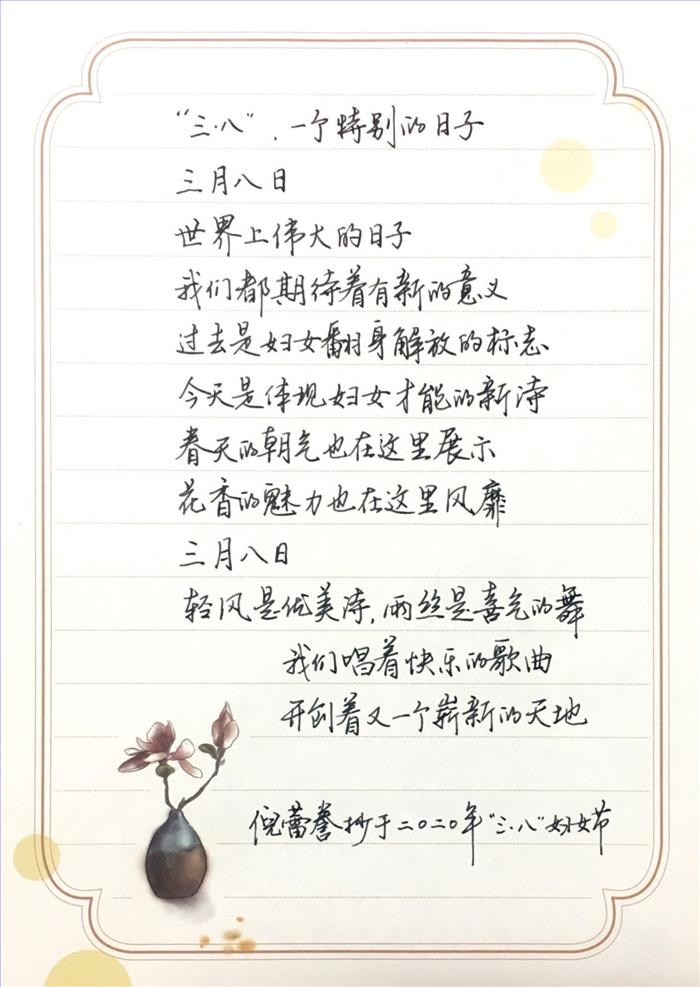 “三·八”、一个特别的日子
三月八日
世界上伟大的日子
我们都期待着有新的意义
过去是妇女翻身解放的标志
今天是体现妇女才能的新诗
春天的朝气也在这里展示
花香的魅力也在这里风靡
三月八日
轻风是优美诗,雨丝是喜气的舞
我们唱着快乐的歌曲
开创着又一个崭新的天地
倪蕾誊抄于二〇二〇年“三·八”妇女节